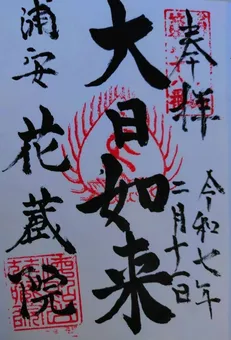 奉拝
令和七年
二月十二日
大日如来
浦安
花蔵院